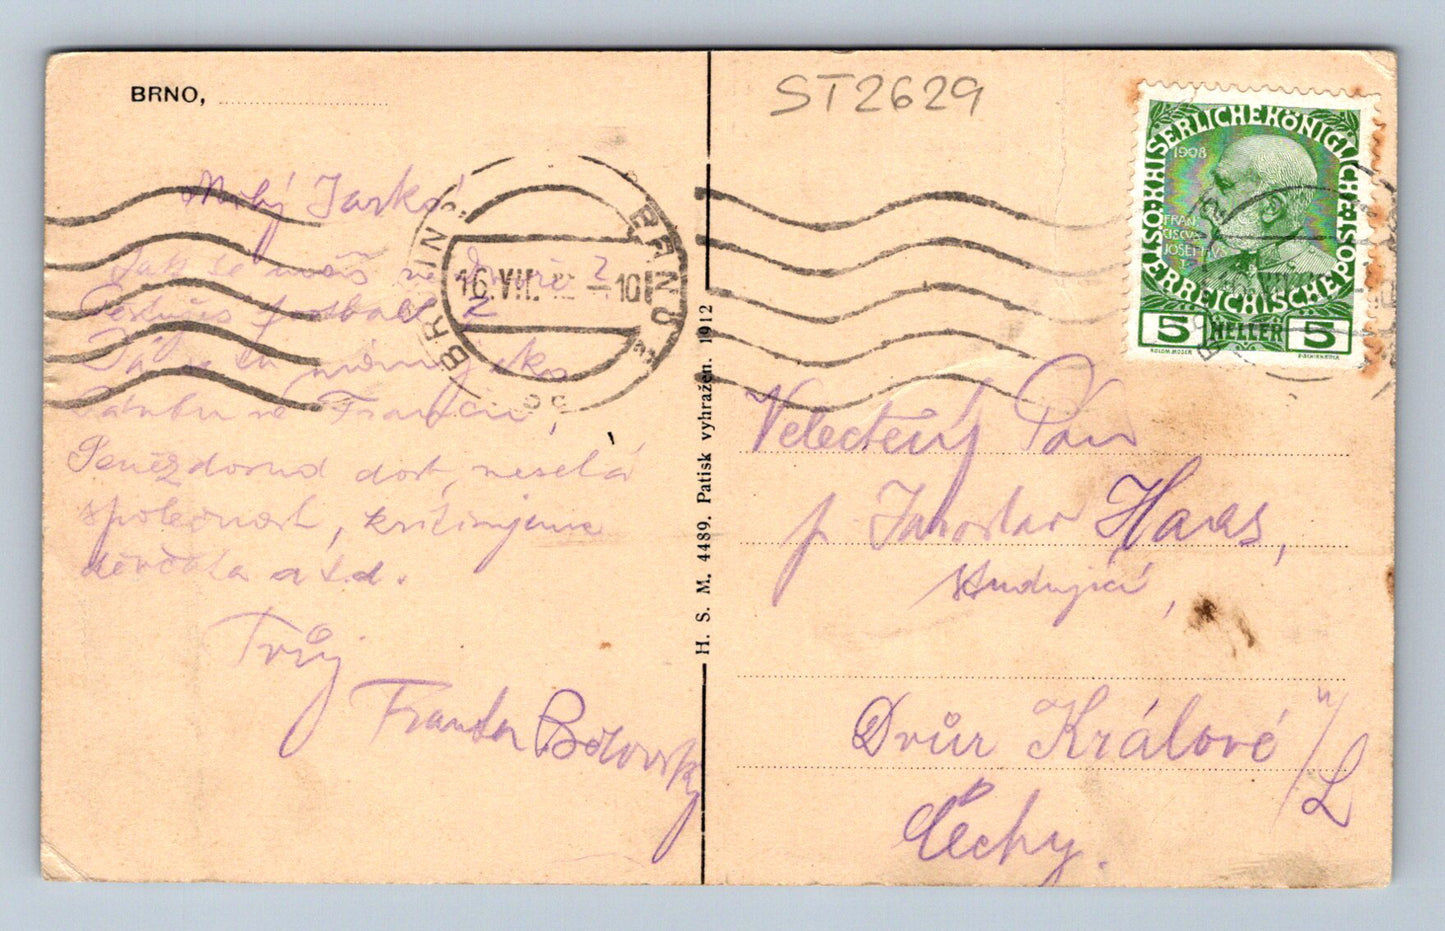 BRNO,
ST2629
Milý Jarko!
Jak se máš ve Dvoře?
football?
Já se tu mám jako
ve Francii,
Peněz dosud dost, veselá
společnost,
děvčata a t.d.
Tvůj
Franta
BRÜNN
16.VII.
10
BRNO
H. S. M. 4489. Patisk vyhražen. 1912
KAISERLICHE KÖNIGLICHE ÖSTERREICHISCHE POST
1908
FRAN
CISCVS
JOSEPHVS
I
5 HELLER 5
KOLOM. MOSER
F. SCHIRNBÖCK
Velectěný Pán
p. Jaroslav Haras,
studující,
Dvůr Králové n/L
Čechy.